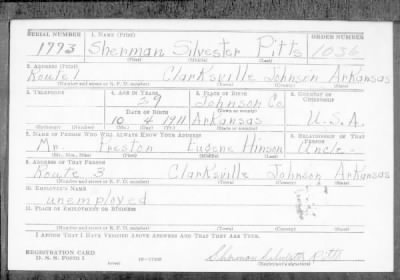 SERIAL NUMBER 1. NAME (Print) ORDER NUMBER
1773 Sherman Silvester Pitts 1036
(First) (Middle) (Last)
2. ADDRESS (Print)
Route 1 Clarksville Johnson Arkansas
(Number and street or R. F. D. number) (Town) (County) (State)
3. TELEPHONE 4. AGE IN YEARS 5. PLACE OF BIRTH 6. COUNTRY OF CITIZENSHIP
29 Johnson Co
DATE OF BIRTH (Town or county)
10 4 1911 Arkansas U.S.A.
(Exchange) (Number) (Mo.) (Day) (Yr.) (State or country)
7. NAME OF PERSON WHO WILL ALWAYS KNOW YOUR ADDRESS 8. RELATIONSHIP OF THAT PERSON
Mr. Preston Eugene Hinson Uncle
(Mr., Mrs., Miss) (First) (Middle) (Last)
9. ADDRESS OF THAT PERSON
Route 3 Clarksville Johnson Arkansas
(Number and street or R. F. D. number) (Town) (County) (State)
10. EMPLOYER'S NAME
unemployed
11. PLACE OF EMPLOYMENT OR BUSINESS
(Number and street or R. F. D. number) (Town) (County) (State)
I AFFIRM THAT I HAVE VERIFIED ABOVE ANSWERS AND THAT THEY ARE TRUE.
REGISTRATION CARD
D. S. S. FORM 1 (over) 16-17105 Sherman Silvester Pitts
(Registrant's signature)